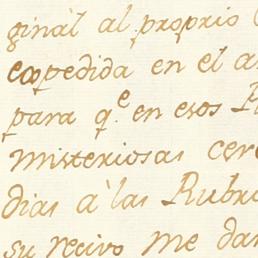 ginal al proprio
expedida en el
para q.e en esos
misteriosas
dias a las
su recivo me